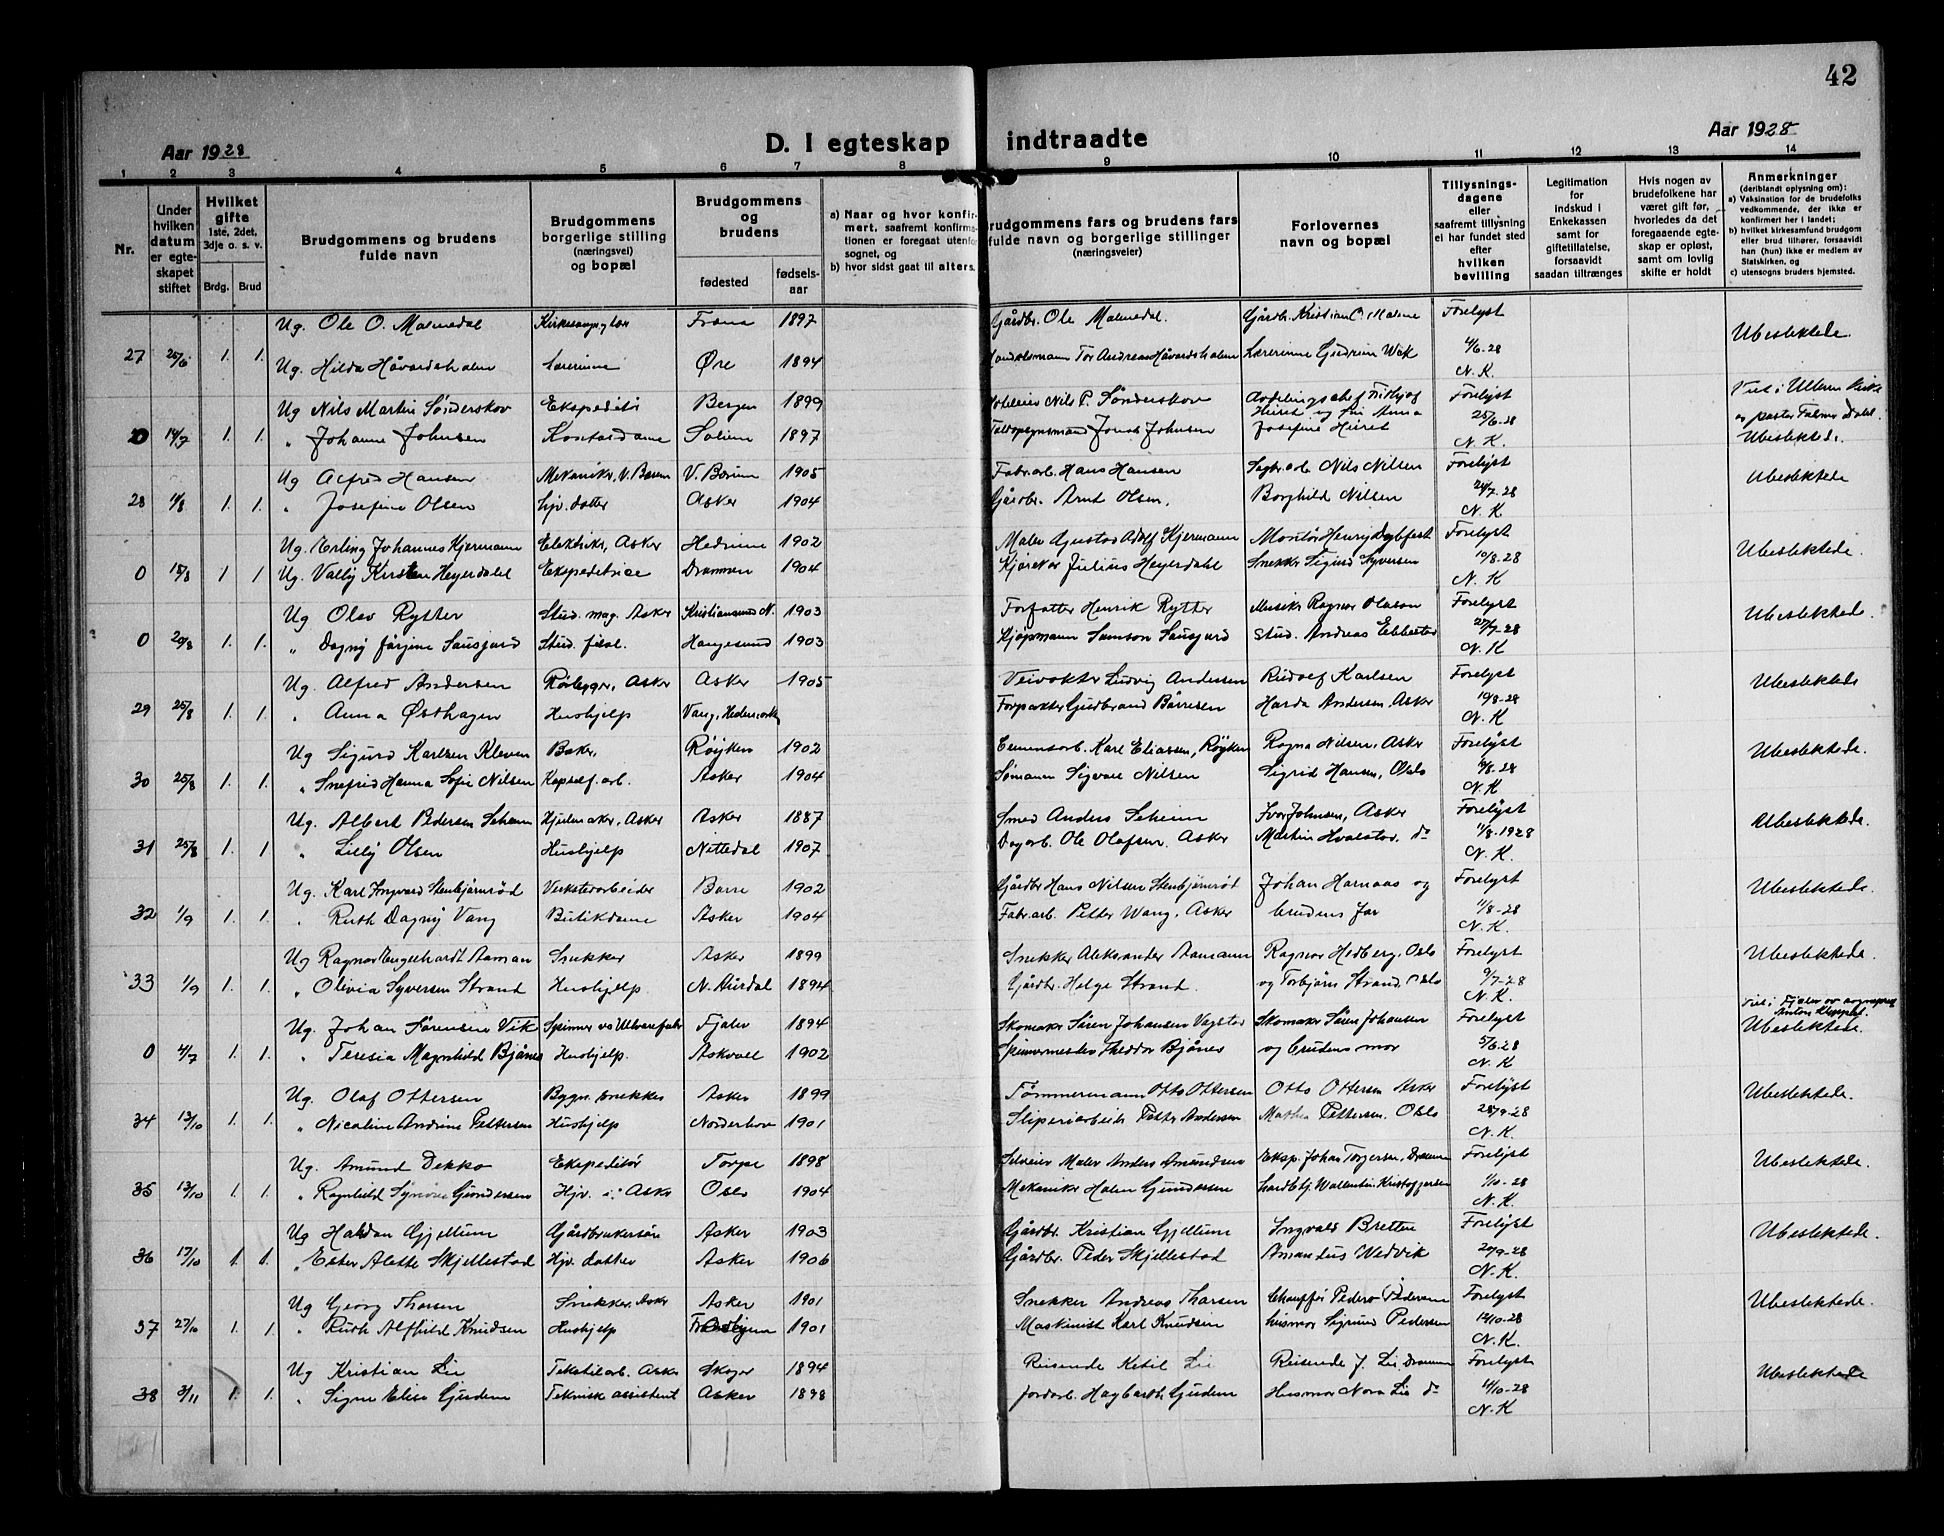 42
D. I egteskap indtraadte
Aar 1928
Aar 1928
1 2 3 4 5 6 7 8 9 10 11 12 13 14
Nr.
Under hvilken datum er egteskapet stiftet
Hvilket gifte 1ste, 2det, 3dje o. s. v.
Brdg. Brud
Brudgommens og brudens fulde navn
Brudgommens borgerlige stilling (næringsvei) og bopæl
Brudgommens og brudens
fødested fødselsaar
a) Naar og hvor konfirmert, saafremt konfirmationen er foregaat utenfor sognet, og
b) hvor sidst gaat til alters.
Brudgommens fars og brudens fars fulde navn og borgerlige stillinger (næringsveier)
Forlovernes navn og bopæl
Tillysningsdagene eller saafremt tillysning ei har fundet sted efter hvilken bevilling
Legitimation for indskud i Enkekassen samt for giftetillatelse, forsaavidt saadan tiltrænges
Hvis nogen av brudefolkene har været gift før, hvorledes da det foregaaende egteskap er opløst, samt om lovlig skifte er holdt
Anmerkninger (deriblandt oplysning om):
a) Vaksination for de brudefolks vedkommende, der ikke er konfirmert her i landet;
b) hvilket kirkesamfund brudgom eller brud tilhører, forsaavidt han (hun) ikke er medlem av Statskirken, og
c) utensogns bruders hjemsted.
Ug. Ole O. Malmedal Kirkesanger Fræna 1897 Gårdbr. Ole Malmedal. Gårdbr. Kristian O. Malme Forelyst Ubeslektede
27 25/6 1. 1. Ug. Hilda Håvardsholm Lærerinne Øre 1894 Tor Andreas Håvardsholm Lærerinne Gudrun Wæk 4/6-28 N. K.
Ug Nils Martin Sønderskov Ekspeditør Bergen 1899 Nils P. Sønderskov Forelyst Viet i Ullern Kirke
0 14/7 1. 1. " Johanne Johnsen Kontordame Solum 1897 Tolloppsynsmand Johnsen Josefine Hurst 25/6-28 N. K. Ubeslektede.
Ug Alfred Hansen Mekaniker, V. Bærum V. Bærum 1905 Fabr.arb. Hans Hansen Nils Nilsen Forelyst Ubeslektede
28 11/8 1. 1. " Josefine Olsen Hjv. datter Asker 1904 Gårdbr. Arnt Olsen. Borghild Nilsen 24/7-28 N. K
Ug. Erling Johannes Kjermann Elektriker, Asker Hedrum 1902 Maler Gustav Adolf Kjermann Montør Henry Dybfest Forelyst Ubeslektede.
0 15/8 1 1 Ug. Vally Kirsten Heyerdahl Ekspeditrice Drammen 1904 Kjører Julius Heyerdahl Snekker Sigurd Syversen 10/8-28 N. K
Ug Olav Rytter Stud. mag. Asker Kristiansund N. 1903 Forfatter Henrik Rytter Musiker Ragnar Olason Forelyst Ubeslektede
0 20/8 1. 1. " Dagny Stud. filol. Haugesund 1903 Kjøpmann Samson Stud. Andreas 27/7-28 N. K
Ug. Alfred Andersen Rørlegger, Asker Asker 1905 Veivokter Ludvig Andersen Rudolf Karlsen Forelyst Ubeslektede
29 25/8 1. 1. " Anna Østhagen Hushjelp Vang, Hedemark Forpakter Gudbrand Børresen Harda Andersen, Asker 10/8-28 N. K
Ug Sigurd Karlsen Kleven Baker, Røyken 1902 Cementarb. Karl Eliassen, Røyken Ragna Nilsen, Asker Forelyst Ubeslektede.
30 25/8 1. 1. " Snefrid Hanna Sofie Nilsen Kapself.arb. Asker 1904 Sømann Sigvart Nilsen Sigrid Hansen, Oslo N. K
Ug. Albert Pedersen Seheim Hjulmaker, Asker Asker 1887 Smed Anders Seheim Ivar Johnsen, Asker Forelyst Ubeslektede.
31 25/8 1. 1 " Lilly Olsen Hushjelp Nittedal 1907 Dagarb. Ole Olafsen, Asker Martin Hvalstad. do 11/8-1928 N. K.
Ug. Karl Ingvard Stenbjørnrød Verkstedarbeider Borre 1902 Gårdbr Hans Nilsen Stenbjørnrød Johan Harnaas og Forelyst Ubeslektede.
32 1/9 1. 1. " Ruth Dagny Vang Butikdame Asker 1904 Fabr.arb. Petter Wang, Asker brudens far 11/8-28 N. K.
Ug Ragnar Engelhardt Aaman Snekker Asker 1899 Snekker Aleksander Aamann Ragnar Hedberg, Oslo Forelyst Ubeslektede.
33 1/9 1. 1. " Olivia Syversen Strand Hushjelp N. Aurdal 1894 Gårdbr. Helge Strand. og Torbjørn Strand, Oslo 9/7-28 N. K.
Ug. Johan Sørensen Vik Spinner Fjaler 1894 Skomaker Søren Johansen Skomaker Søren Johansen Forelyst Viet i Fjaler av sogneprest Anton Ubeslektede.
0 4/7 1. 1. " Teresia Magnhild Bjånes Hushjelp. Askvoll 1902 Spinnermester Theodor Bjånes og brudens mor 5/6-28 N. K
Ug. Olaf Ottersen Bygn. snekker Asker 1899 Tømmermann Otto Ottersen Otto Ottersen Asker Forelyst Ubeslektede.
34 13/10 1. 1. " Nicoline Andrine Pettersen Hushjelp Norderhov 1901 Sliperiarbeider Petter Andersen Mathea Pettersen, Oslo 28/9-28 N. K.
Ug. Amund Dekko Ekspeditør Torpe 1898 Selveier Maler Anders Amundsen Eksp. Johan Torgersen, Drammen Forelyst Ubeslektede.
35 13/10 1. 1. " Ragnhild Synøve Gundersen Hjv. i Asker Oslo 1904 Mekaniker Halvor Gundersen Wallentin Kristoffersen 1/10-28 N. K.
Ug Haldan Gjellum Gårdbrukersøn Asker 1903 Gårdbr. Kristian Gjellum Ingvald Bretten Forelyst Ubeslektede.
36 17/10 1. 1. " Ester Alette Skjellestad Hjv. datter Asker 1906 Gårdbr. Peder Skjellestad Amandus Wedvik 20/9-28 N. K.
Ug Georg Tharsen Snekker, Asker Asker 1901 Snekker Andreas Tharsen Chauffør Peder Pedersen Forelyst Ubeslektede.
37 27/10 1. 1. " Ruth Alfhild Knudsen Hushjelp 1901 Maskinist Karl Knudsen husmor Sigrund Pedersen 14/10-28 N. K.
Ug Kristian Lie Tekstilarb. Asker Skoger 1894 Reisende Ketil Lie Reisende J. Lie, Drammen Forelyst Ubeslektede
38 3/11 1. 1. " Signe Elise Gudem Teknisk assistent Asker 1898 Jordarb. Hagbarth Gudem Husmor Nora Lie do 14/10-28 N. K